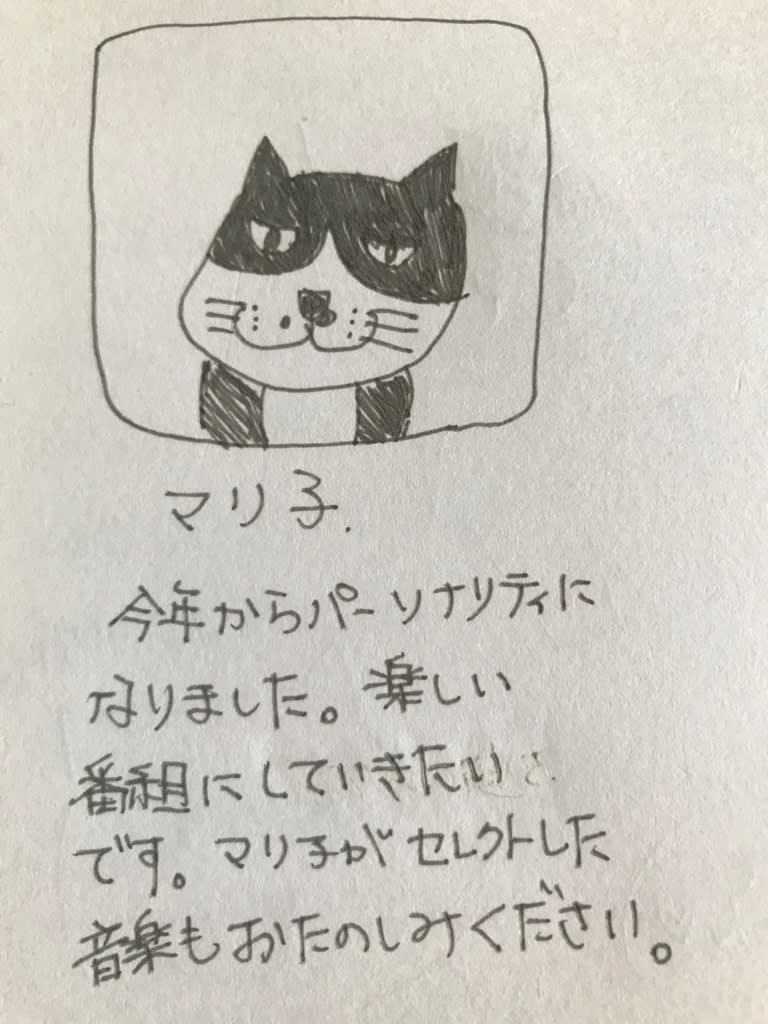 マリ子.
今年からパーソナリティに
なりました。楽しい
番組にしていきたい
です。マリ子がセレクトした
音楽もおたのしみください。